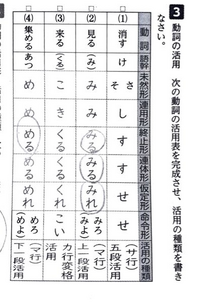 3 動詞の活用 次の動詞の活用表を完成させ、活用の種類を書きなさい。
動詞 語幹 未然形 連用形 終止形 連体形 仮定形 命令形 活用の種類
(1) 消す け さ そ し す す せ せ (サ行) 五段活用
(2) 見る (み) み み みる みる みれ みろ (みよ) (マ行) 上一段活用
(3) 来る (くる) こ き くる くる くれ こい カ行変格活用
(4) 集める あつ め め める める めれ めろ (めよ) (マ行) 下一段活用